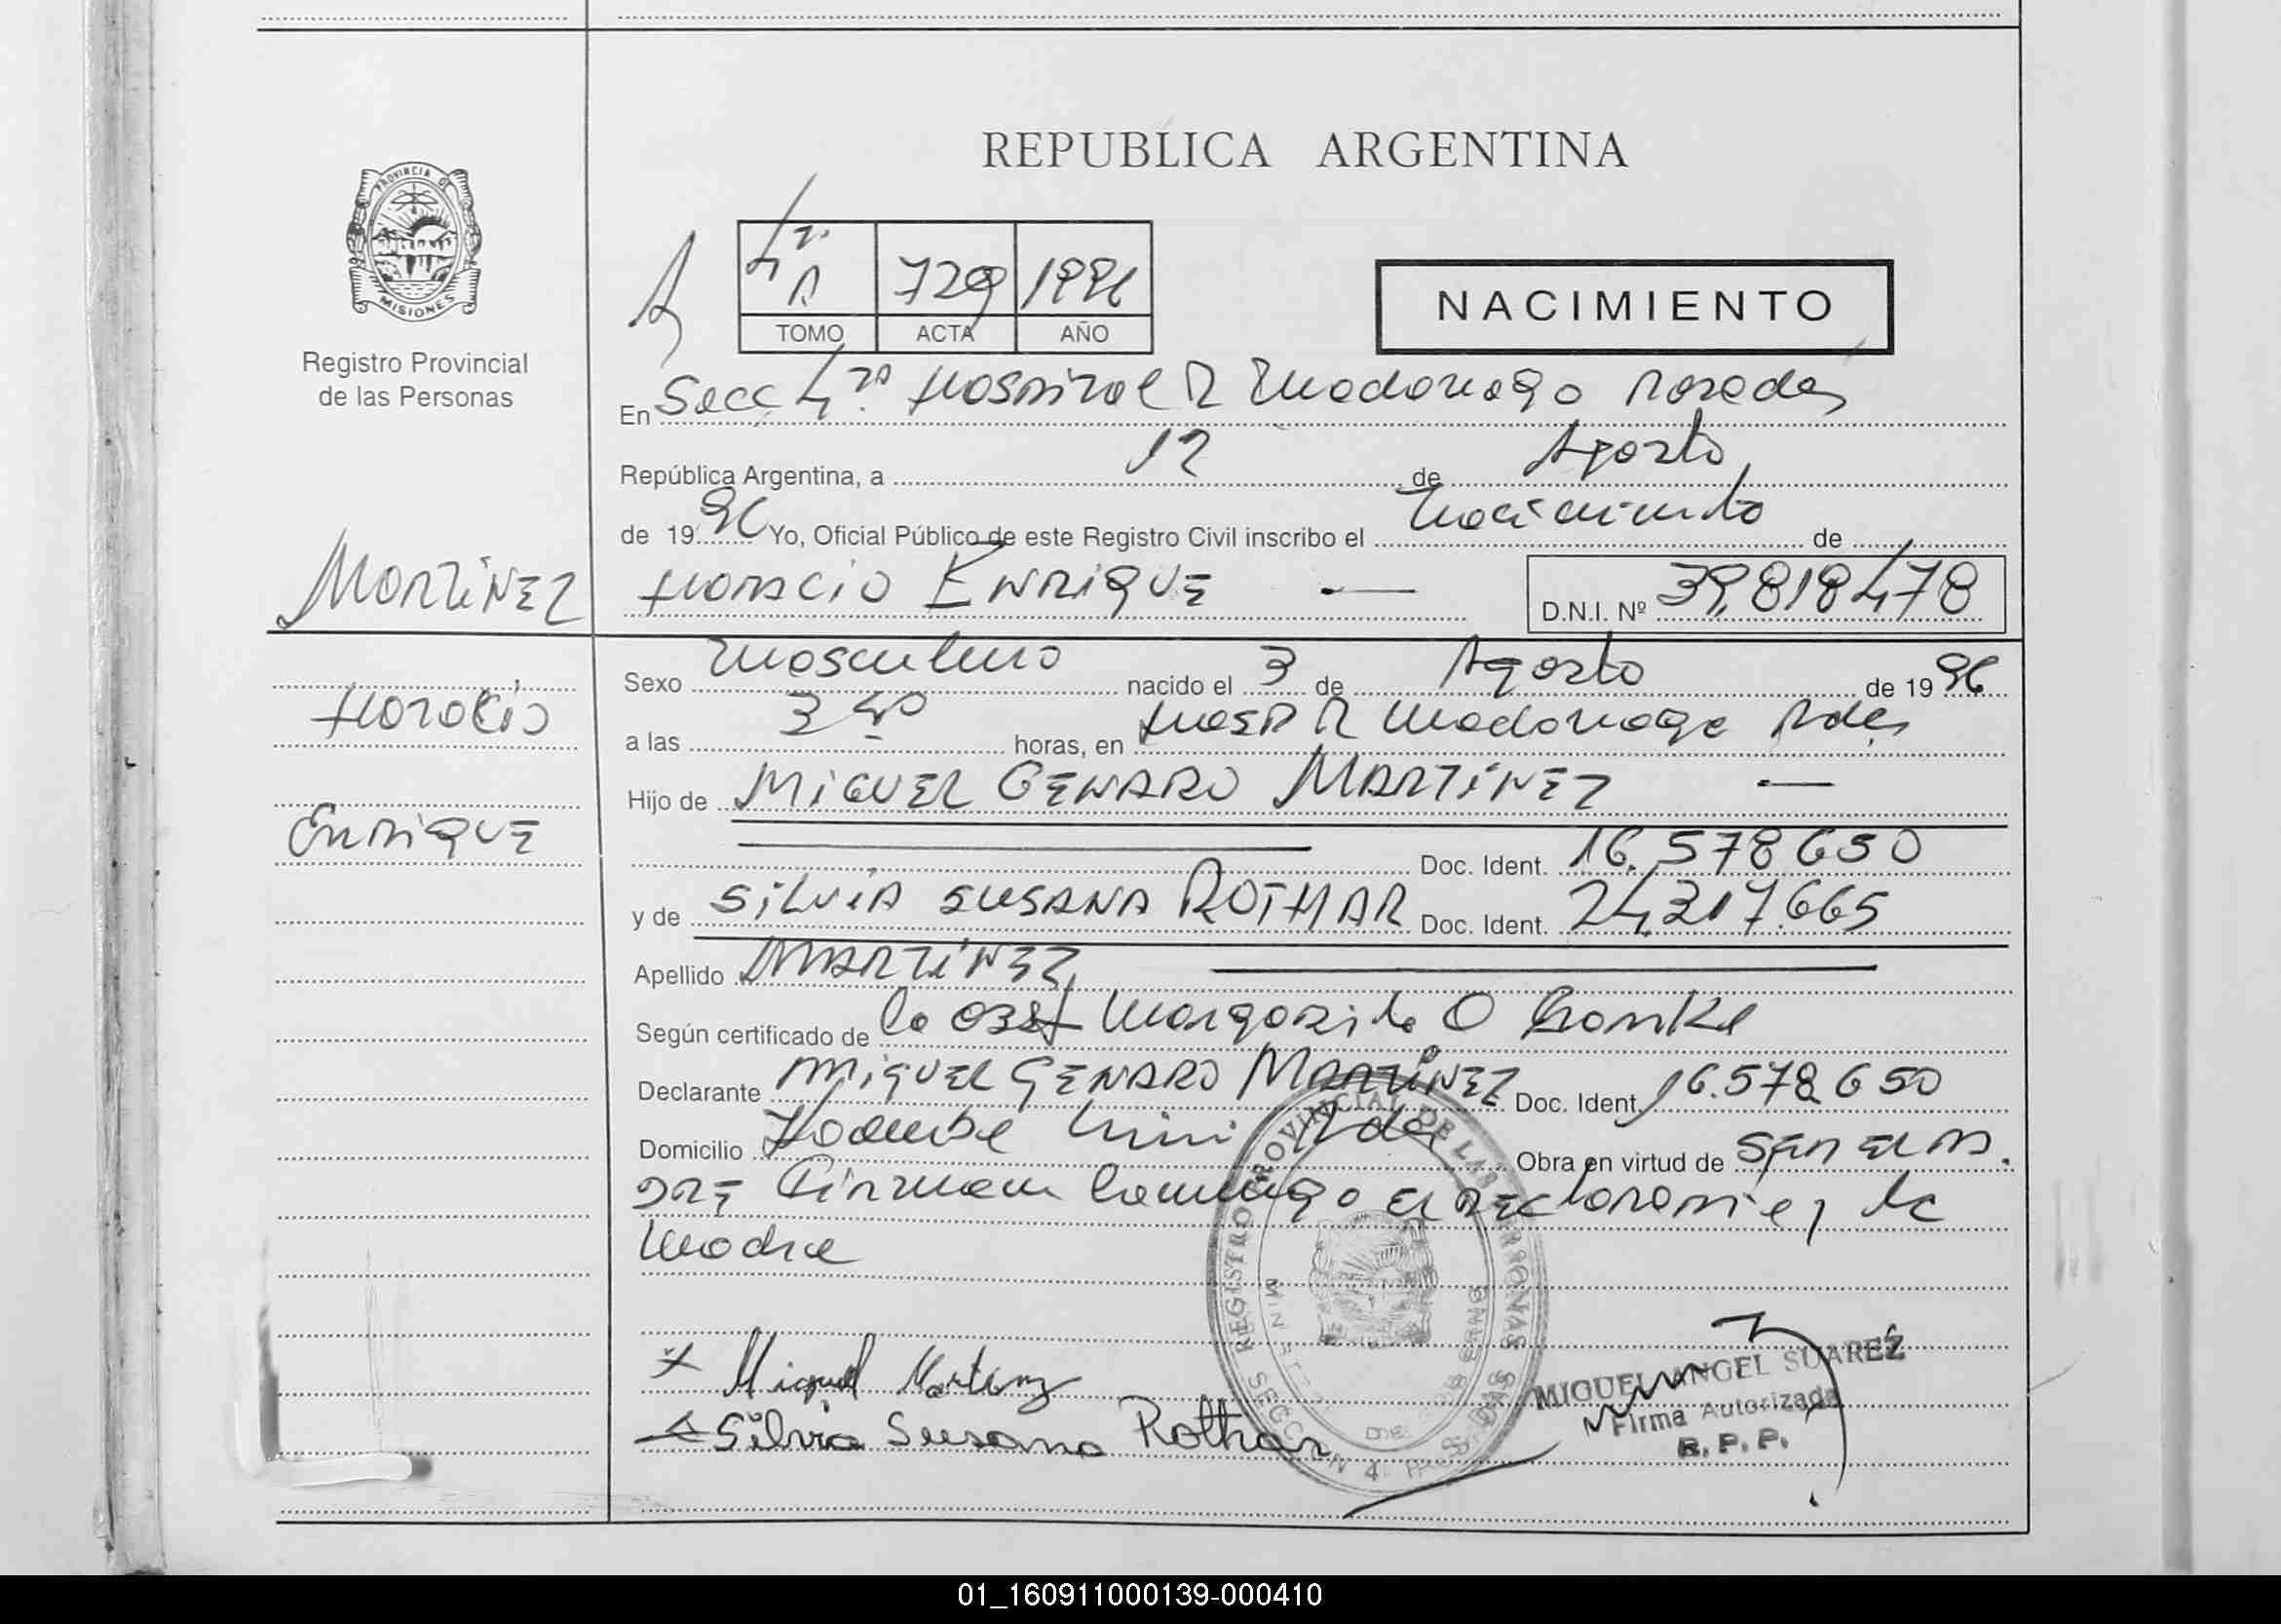 REPUBLICA ARGENTINA
PROVINCIA DE
MISIONES
Registro Provincial
de las Personas
4ta A 729 1996
TOMO ACTA AÑO
NACIMIENTO
En Secc 4ta Hospital R Madariaga Posadas
República Argentina, a 12 de Agosto
de 1996 Yo, Oficial Público de este Registro Civil inscribo el Nacimiento de
Martinez
HORACIO ENRIQUE — D.N.I. Nº 39.818478
Horacio
Enrique
Sexo Masculino nacido el 3 de Agosto de 1996
a las 3 40 horas, en Hosp R Madariaga Pdas
Hijo de MIGUEL GENARO MARTINEZ —
Doc. Ident. 16.578650
y de SILVIA SUSANA ROTHAR Doc. Ident. 24.317.665
Apellido MARTINEZ
Según certificado de la obst Margarita O
Declarante MIGUEL GENARO MARTINEZ Doc. Ident. 16.578.650
Domicilio Pdas Obra en virtud de
Firman Conmigo El Declarante y la
Madre
x Miguel Martinez
Silvia Susana Rothar
REGISTRO PROVINCIAL DE LAS PERSONAS
SECCION 4
MIGUEL ANGEL SUAREZ
Firma Autorizada
R. P. P.
01_160911000139-000410